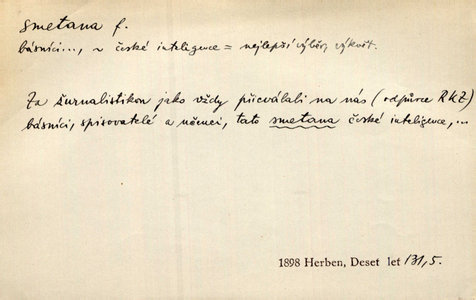 smetana f.
básníci..., ~ české inteligence = nejlepší výběr, výkvět.
Za žurnalistikou jako vždy přicválali na nás (odpůrce RKZ)
básníci, spisovatelé a němci, tato smetana české inteligence,...
1898 Herben, Deset let 131,5.